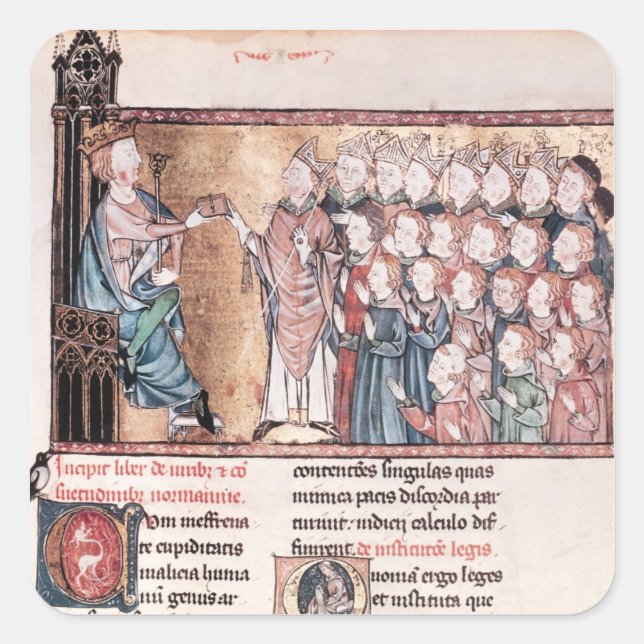 Incipit liber de iuribꝰ ⁊ cō
suetudinibꝰ normannie.
Cum ineffrena
te cupiditatis
malicia huma
nū genus ar
contentōes singulas quas
inimica pacis discordia par
turiuit. iudicii calculo dif
finirent. de institutōe legis
Quoniā ergo leges
et instituta que